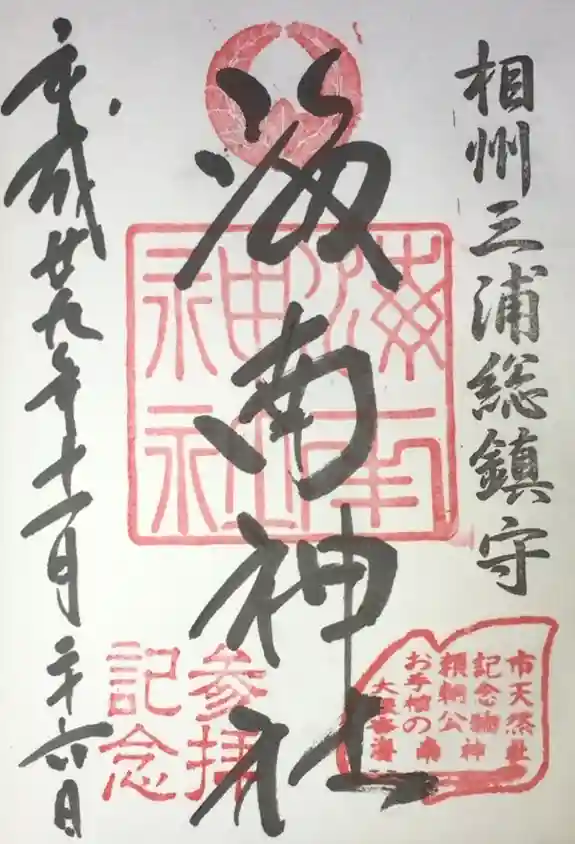 相州三浦総鎮守
海南神社
平成廿九年十一月二十六日
海南
神社
参拝
記念
市天然
記念物
頼朝公
お手植の